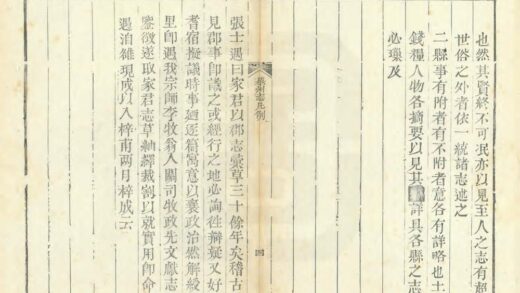 也然其賢終不可泯亦以見至人之志有超
世俗之外者依一統諸志述之
二縣事有附者有不附者意各有詳略也土
錢糧人物各摘要以見其詳具各縣之志
必瑣及
華州志凡例
四
張士遇曰家君以郡志彙草三十餘年矣稽古
見郡事即識之或經行之地必詢往辯疑又好
耆宿擬議時事廻逐籍寓意以襄政治然解綬
里即遇我宗師李牧翁入關司牧政先文獻志
鑒欲遂取家君志草紬繹裁割以就實用即命
遇洎雄現成以入梓甫两月梓成云